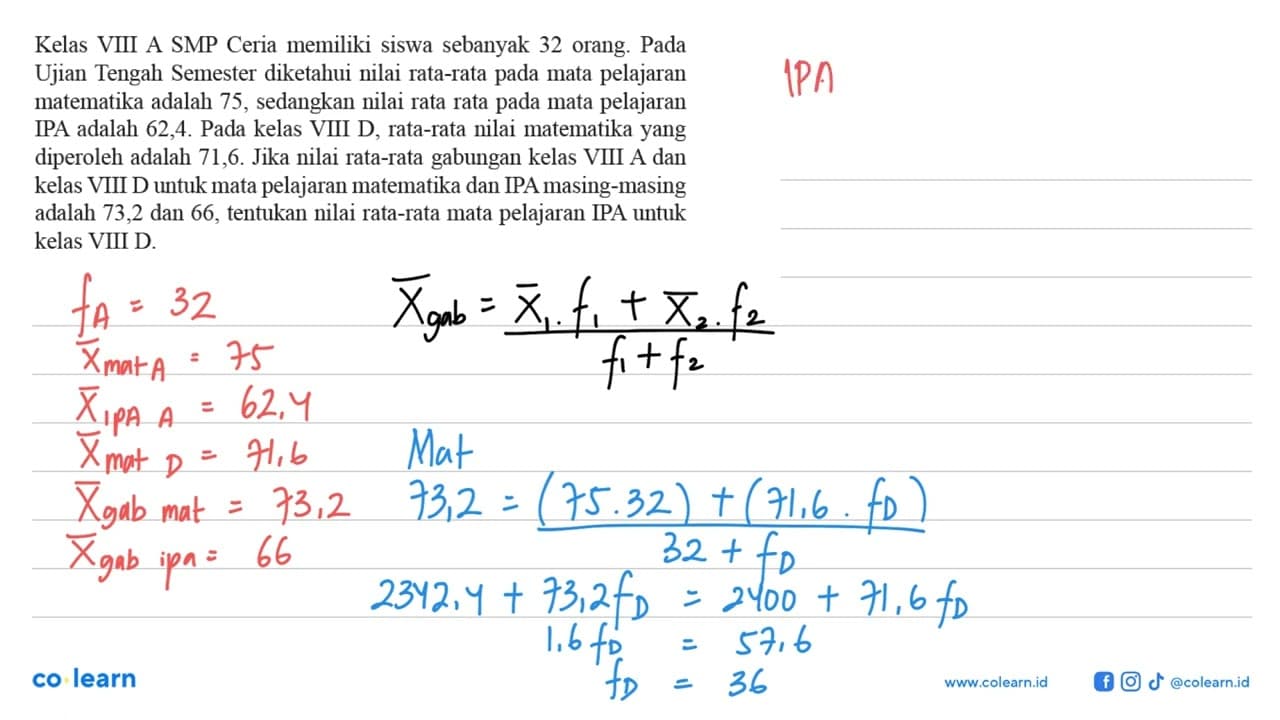 Kelas VIII A SMP Ceria memiliki siswa sebanyak 32 orang. Pada
Ujian Tengah Semester diketahui nilai rata-rata pada mata pelajaran
matematika adalah 75, sedangkan nilai rata rata pada mata pelajaran
IPA adalah 62,4. Pada kelas VIII D, rata-rata nilai matematika yang
diperoleh adalah 71,6. Jika nilai rata-rata gabungan kelas VIII A dan
kelas VIII D untuk mata pelajaran matematika dan IPA masing-masing
adalah 73,2 dan 66, tentukan nilai rata-rata mata pelajaran IPA untuk
kelas VIII D.
IPA
f_A = 32
x̄ mat A = 75
x̄ IPA A = 62,4
x̄ mat D = 71,6
x̄ gab mat = 73,2
x̄ gab ipa = 66
x̄ gab = x̄₁ . f₁ + x̄₂ . f₂
f₁ + f₂
Mat
73,2 = (75 . 32) + (71,6 . f_D)
32 + f_D
2342,4 + 73,2 f_D = 2400 + 71,6 f_D
1,6 f_D = 57,6
f_D = 36
co learn
www.colearn.id
@colearn.id